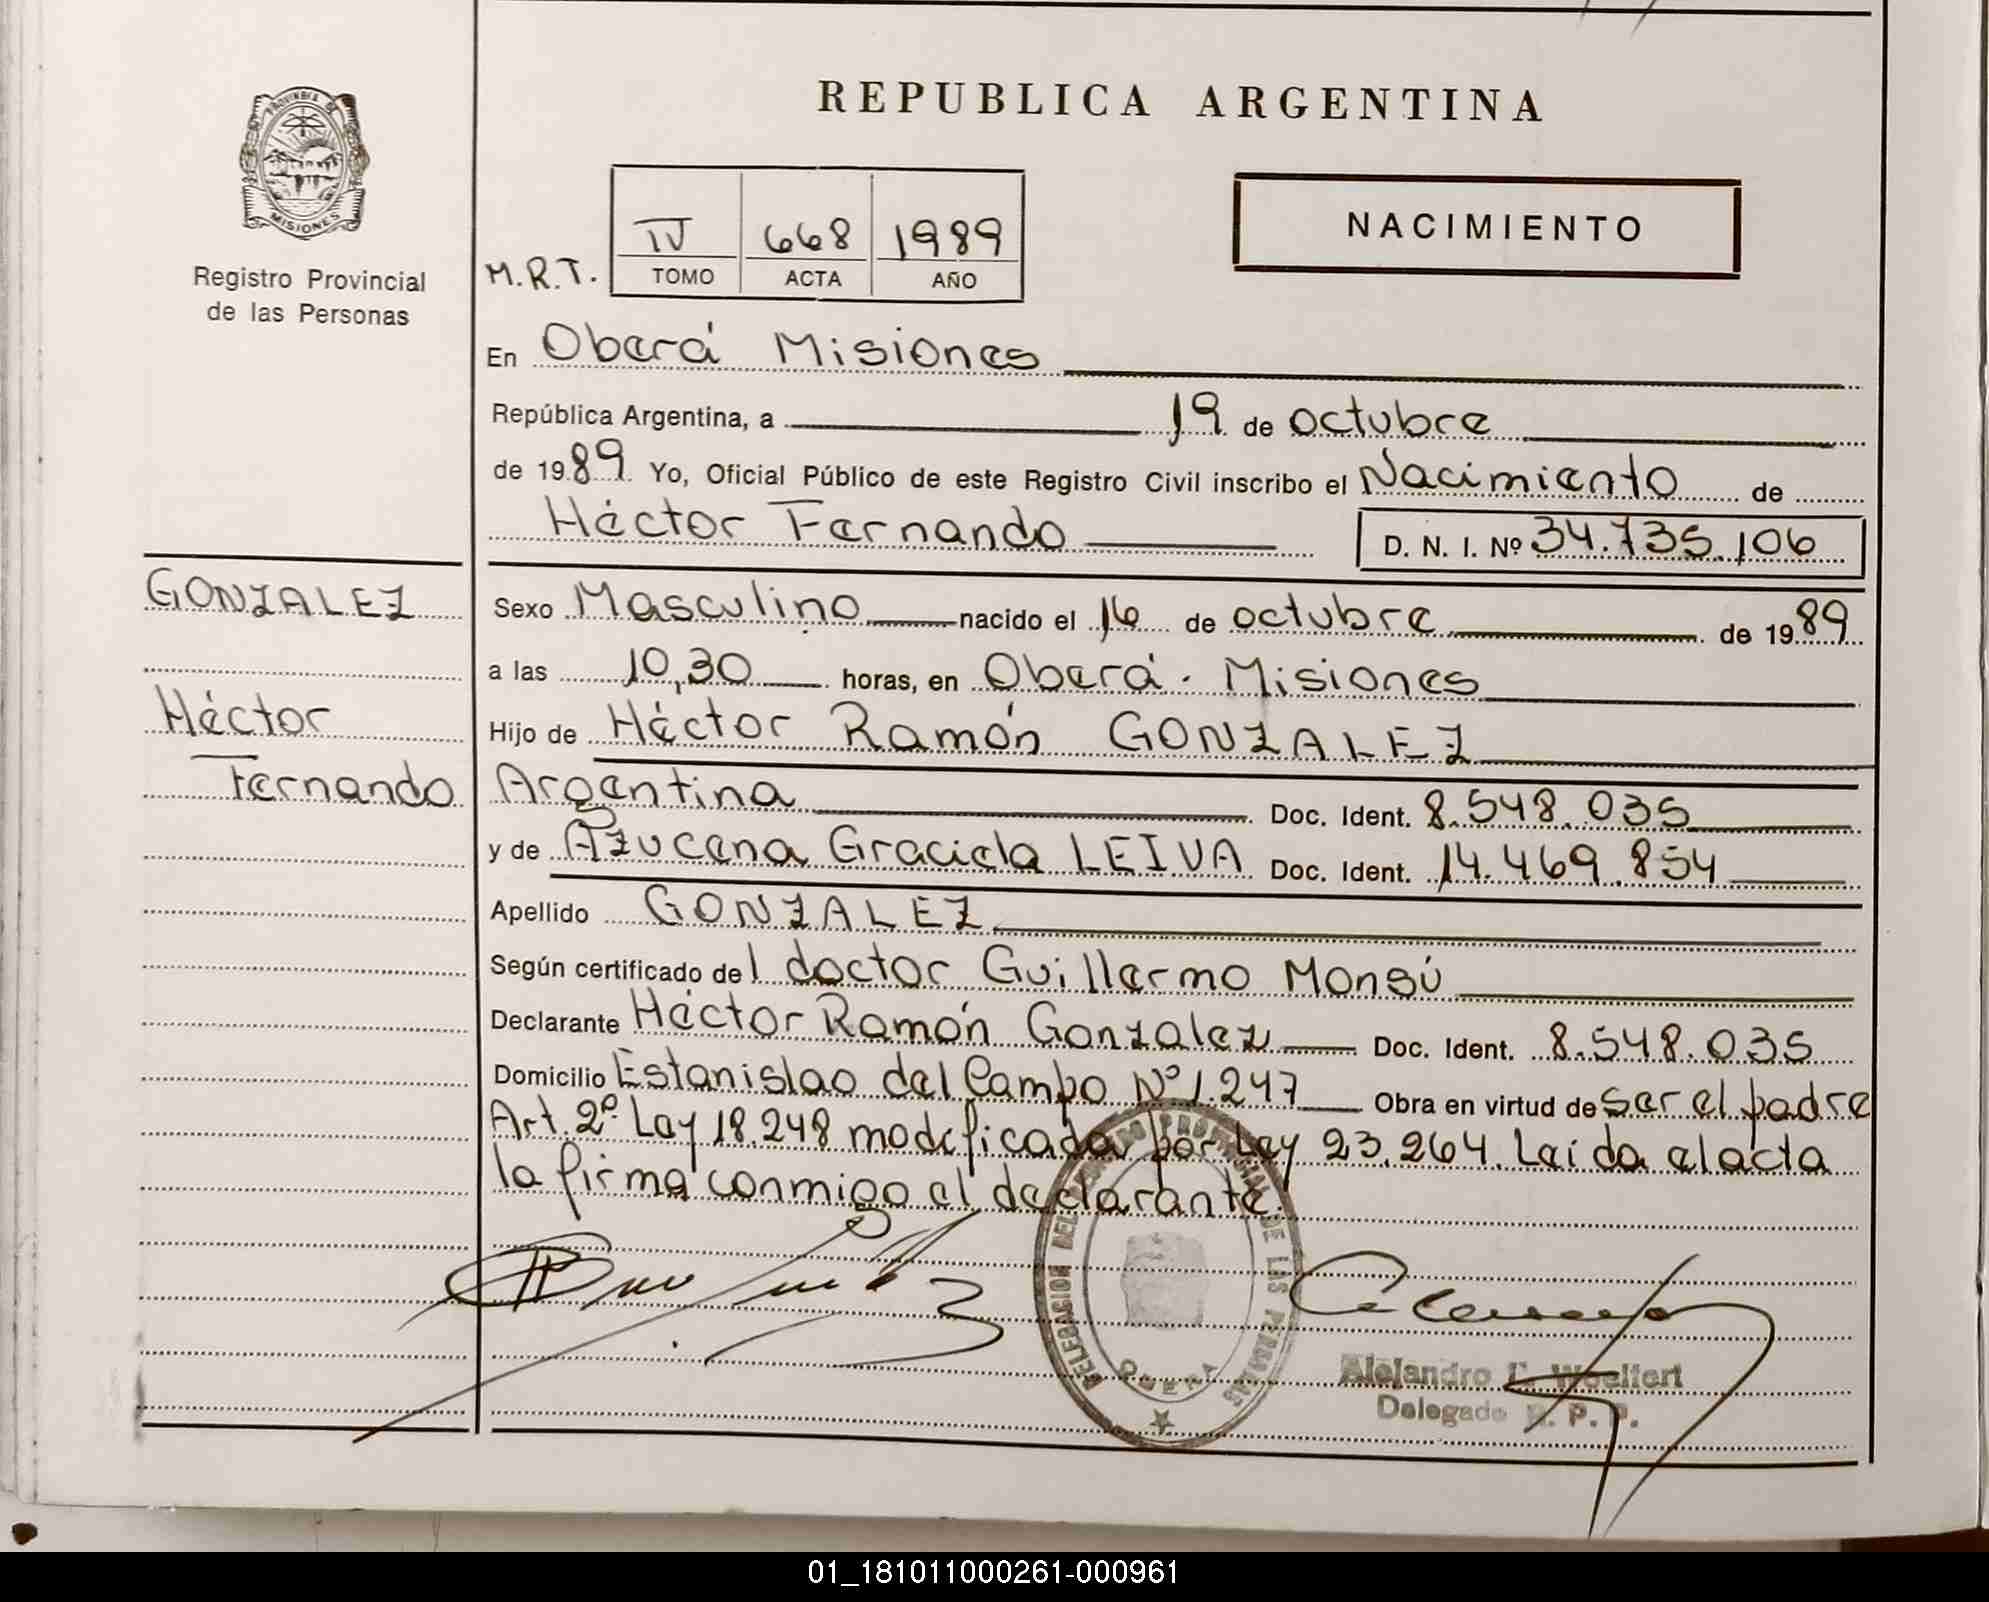 REPUBLICA ARGENTINA
PROVINCIA DE
MISIONES
Registro Provincial
de las Personas
NACIMIENTO
M.R.T.
IV 668 1989
TOMO ACTA AÑO
En Oberá Misiones
República Argentina, a 19 de octubre
de 1989. Yo, Oficial Público de este Registro Civil inscribo el Nacimiento de
Héctor Fernando D. N. I. Nº 34.735.106
GONZALEZ
Héctor
Fernando
Sexo Masculino nacido el 16 de octubre de 1989
a las 10,30 horas, en Oberá. Misiones
Hijo de Héctor Ramón GONZALEZ
Argentina Doc. Ident. 8.548.035
y de Azucena Graciela LEIVA Doc. Ident. 14.469.854
Apellido GONZALEZ
Según certificado del doctor Guillermo Monsú
Declarante Héctor Ramón Gonzalez Doc. Ident. 8.548.035
Domicilio Estanislao del Campo Nº 1.247 Obra en virtud de ser el padre
Art. 2º Ley 18.248 modificada por Ley 23.264. Leída el acta
la firma conmigo el declarante.
DELEGACION DEL REGISTRO PROVINCIAL DE LAS PERSONAS
OBERA
Alejandro Woelfert
Delegado R. P. P.
01_181011000261-000961